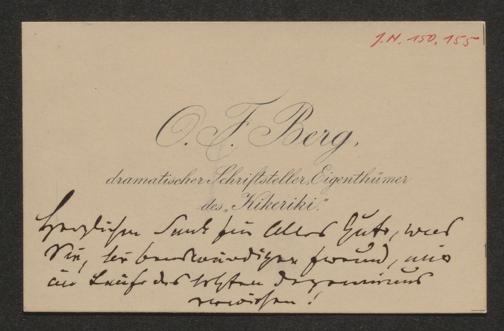 J.N. 150.155
O. F. Berg,
dramatischer Schriftsteller, Eigenthümer
des „Kikeriki“.
Herzlichen Dank für Alles Gute, was
Sie, liebenswürdiger Freund, mir
im Laufe des letzten Dezenniums
erwiesen!